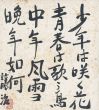 少年は咲く花
青春は歌う
中年風雪
晩年如何